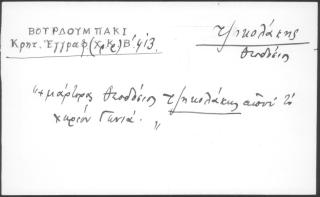 ΒΟΥΡΔΟΥΜΠΑΚΙ
Κρητ. Έγγραφ (Χρ Κρ) Β' 413.
Τζικολάκης
Θεοδόσιος
"+ μάρτυρας Θεοδόσιος Τζηκολάκης από τό
χωρίον Γωνιά. "